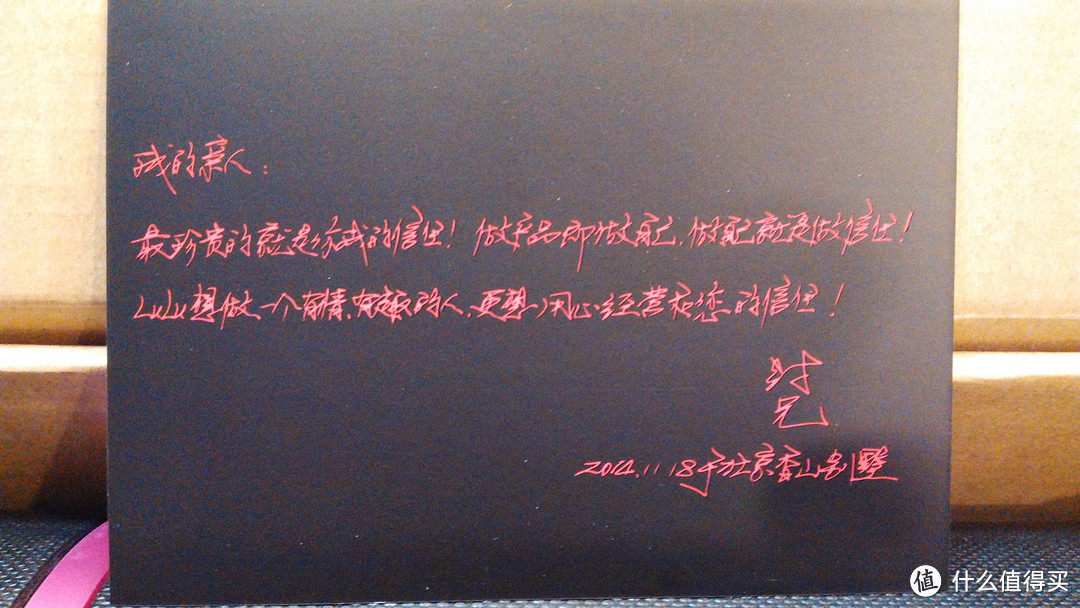 我的亲人：
最珍贵的就是你我的信任！做产品即做自己，做自己就是做信任！
LuLu想做一个有情、有趣的人、更想用心经营和您的信任！
兄
2014.11.18于北京香山别墅
值 什么值得买